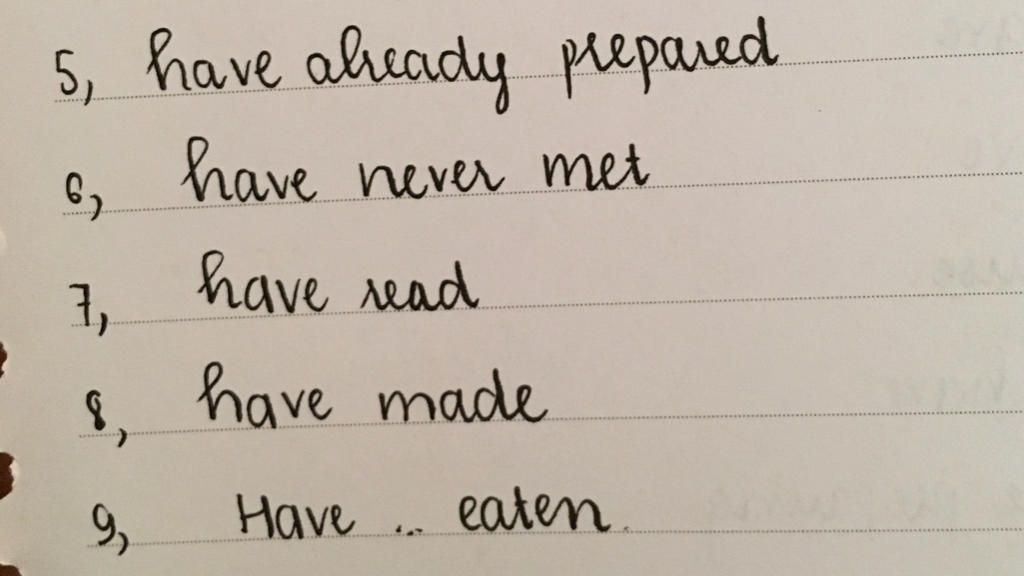 5, have already prepared
6, have never met
7, have read
8, have made
9, Have ... eaten.